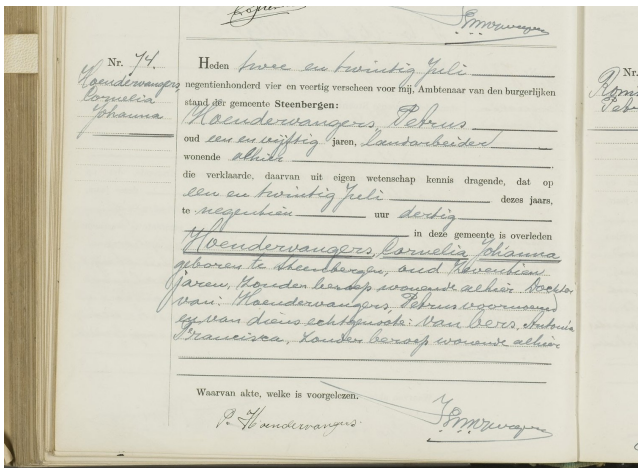 Nr. 74.
Hoendervangers,
Cornelia
Johanna
Heden twee en twintig Juli
negentienhonderd vier en veertig verscheen voor mij, Ambtenaar van den burgerlijken
stand der gemeente Steenbergen:
Hoendervangers, Petrus
oud een en vijftig jaren, landarbeider
wonende alhier
die verklaarde, daarvan uit eigen wetenschap kennis dragende, dat op
een en twintig Juli dezes jaars,
te negentien uur dertig
in deze gemeente is overleden
Hoendervangers, Cornelia Johanna
geboren te Steenbergen, oud zeventien
jaren, zonder beroep wonende alhier. Dochter
van: Hoendervangers, Petrus voornoemd
en van diens echtgenoote: van Eers, Antonia
Francisca, zonder beroep wonende alhier
Waarvan akte, welke is voorgelezen.
P. Hoendervangers.
Nr.